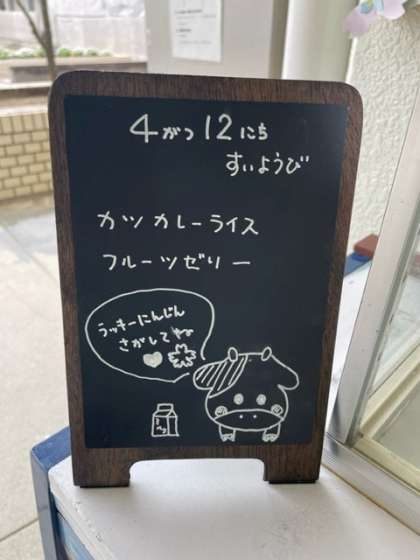 4がつ12にち
すいようび
カツカレーライス
フルーツゼリー
ラッキーにんじん
さがしてね